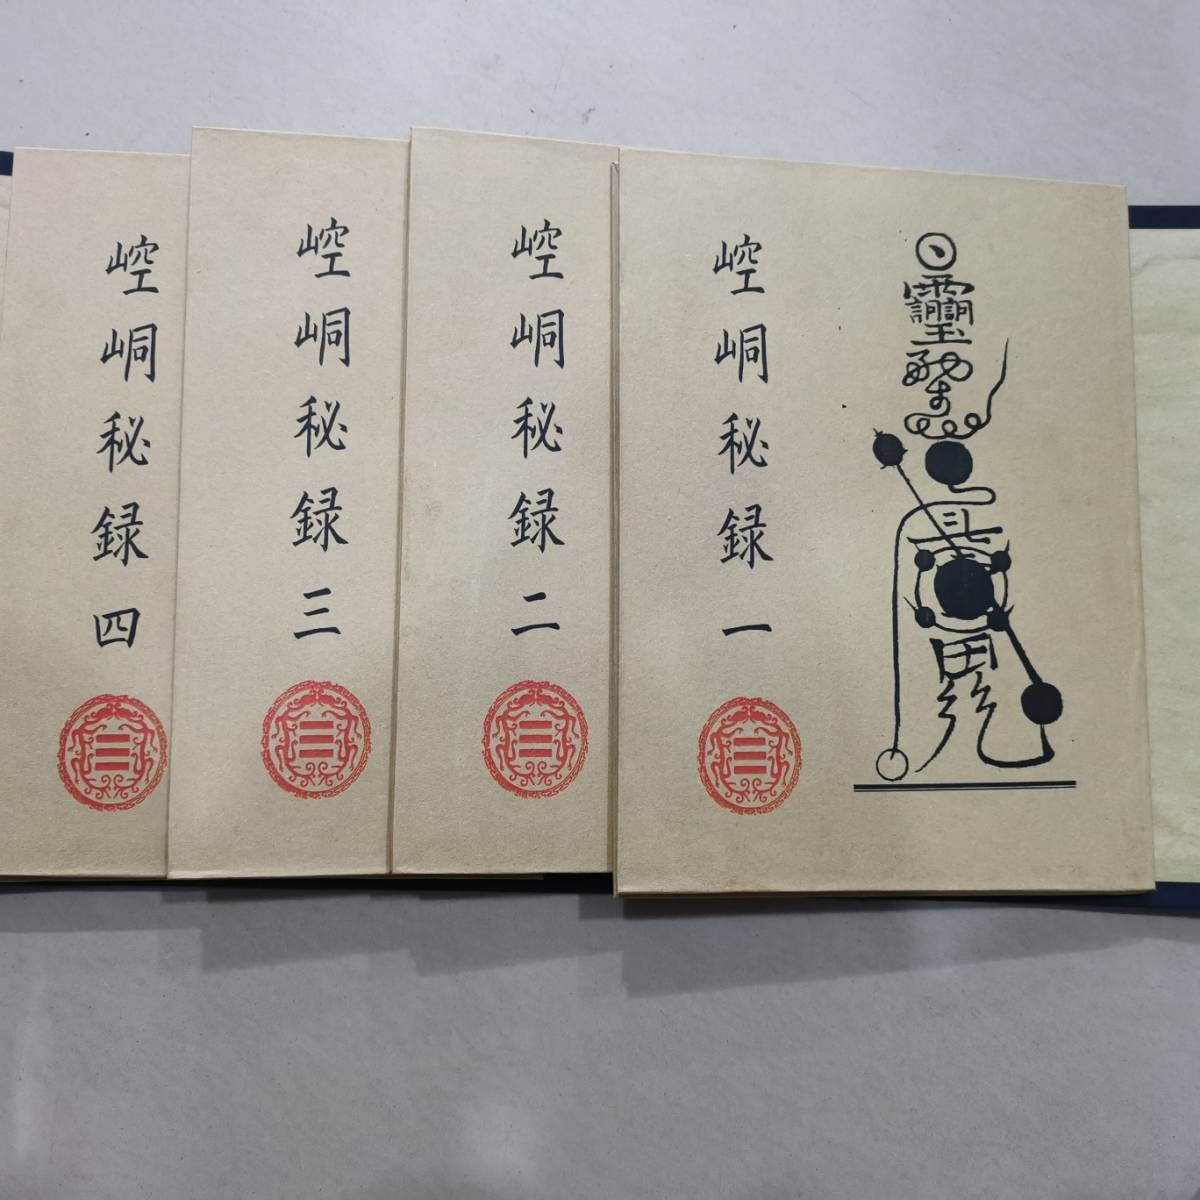 崆峒秘録一
崆峒秘録二
崆峒秘録三
崆峒秘録四